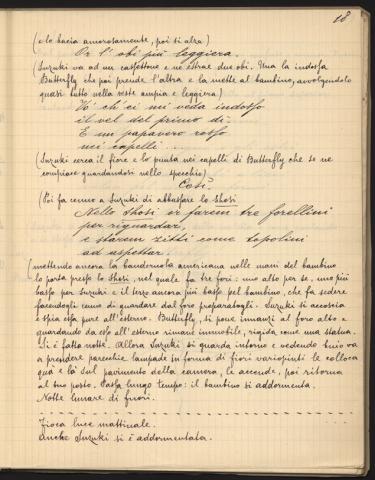 18
(e lo bacia amorosamente, poi si alza)
Or l'obi più leggiera.
(Suzuki va ad un cassettone e ne estrae due obi. Una la indossa
Butterfly che poi prende l'altra e la mette al bambino, avvolgendolo
quasi tutto nella veste ampia e leggiera)
Vo' ch'ei mi veda indosso
il vel del primo dì.
E un papavero rosso
nei capelli...
(Suzuki cerca il fiore e lo punta nei capelli di Butterfly che se ne
compiace guardandosi nello specchio)
Così
(Poi fa cenno a Suzuki di abbassare lo Shosi
Nello Shosi or farem tre forellini
per riguardar,
e starem zitti come topolini
ad aspettar.
(mettendo ancora la banderuola americana nelle mani del bambino
lo porta presso lo Shosi, nel quale fa tre fori: uno alto per sè, uno più
basso per Suzuki e il terzo ancora più basso pel bambino, che fa sedere
facendogli cenno di guardare dal foro preparatogli. Suzuki si accoscia
e spia essa pure all'esterno. Butterfly, si pone innanzi al foro alto e
guardando da esso all'esterno rimane immobile, rigida come una statua.
Si è fatta notte. Allora Suzuki si guarda intorno e vedendo buio va
a prendere parecchie lampade in forma di fiori variopinti le colloca
quà e là sul pavimento della camera, le accende, poi ritorna
al suo posto. Passa lungo tempo: il bambino si addormenta.
Notte lunare di fuori.
Fioca luce mattinale.
Anche Suzuki si è addormentata.